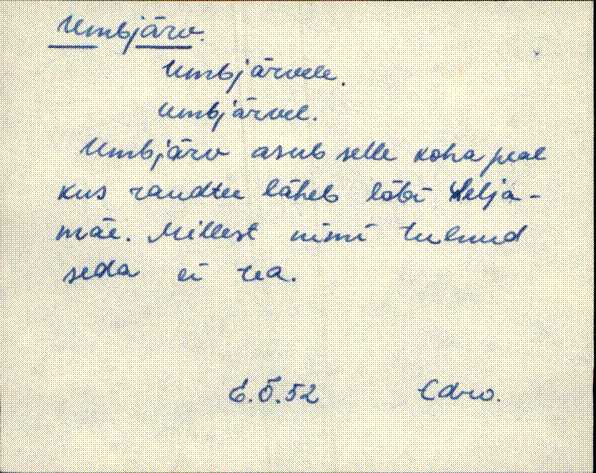 Umbjärv.
Umbjärvele.
Umbjärvel.
Umbjärv asub selle koha peal
kus raudtee läheb läbi Selja-
mäe. Millest nimi tulnud
seda ei tea.
E.Õ.52